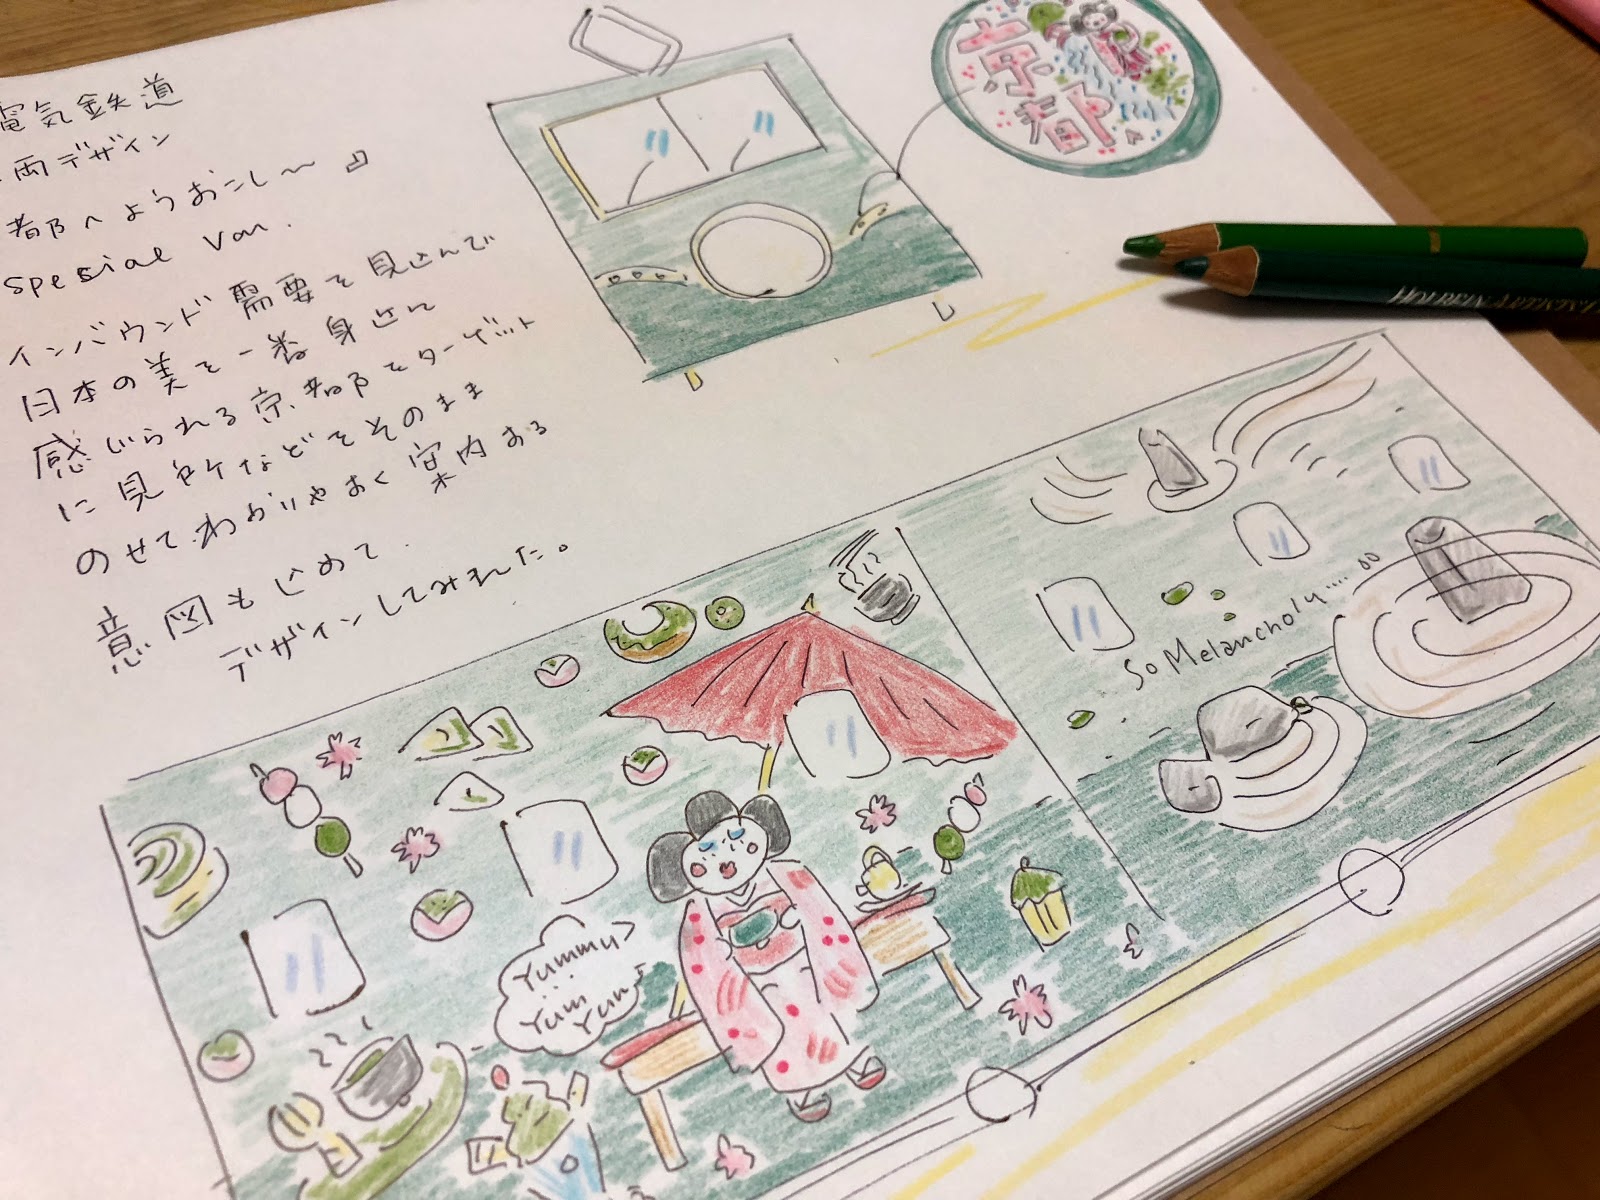 電気鉄道
両デザイン
都へようおこし〜』
Spesial Van.
インバウンド需要を見込んで
日本の美を一番身近に
感じられる京都をターゲット
に見所などをそのまま
のせて、わかりやすく案内する
意図も込めて
デザインしてみました。
京都
So Melancholy.....
Yummy
Yum
Yum